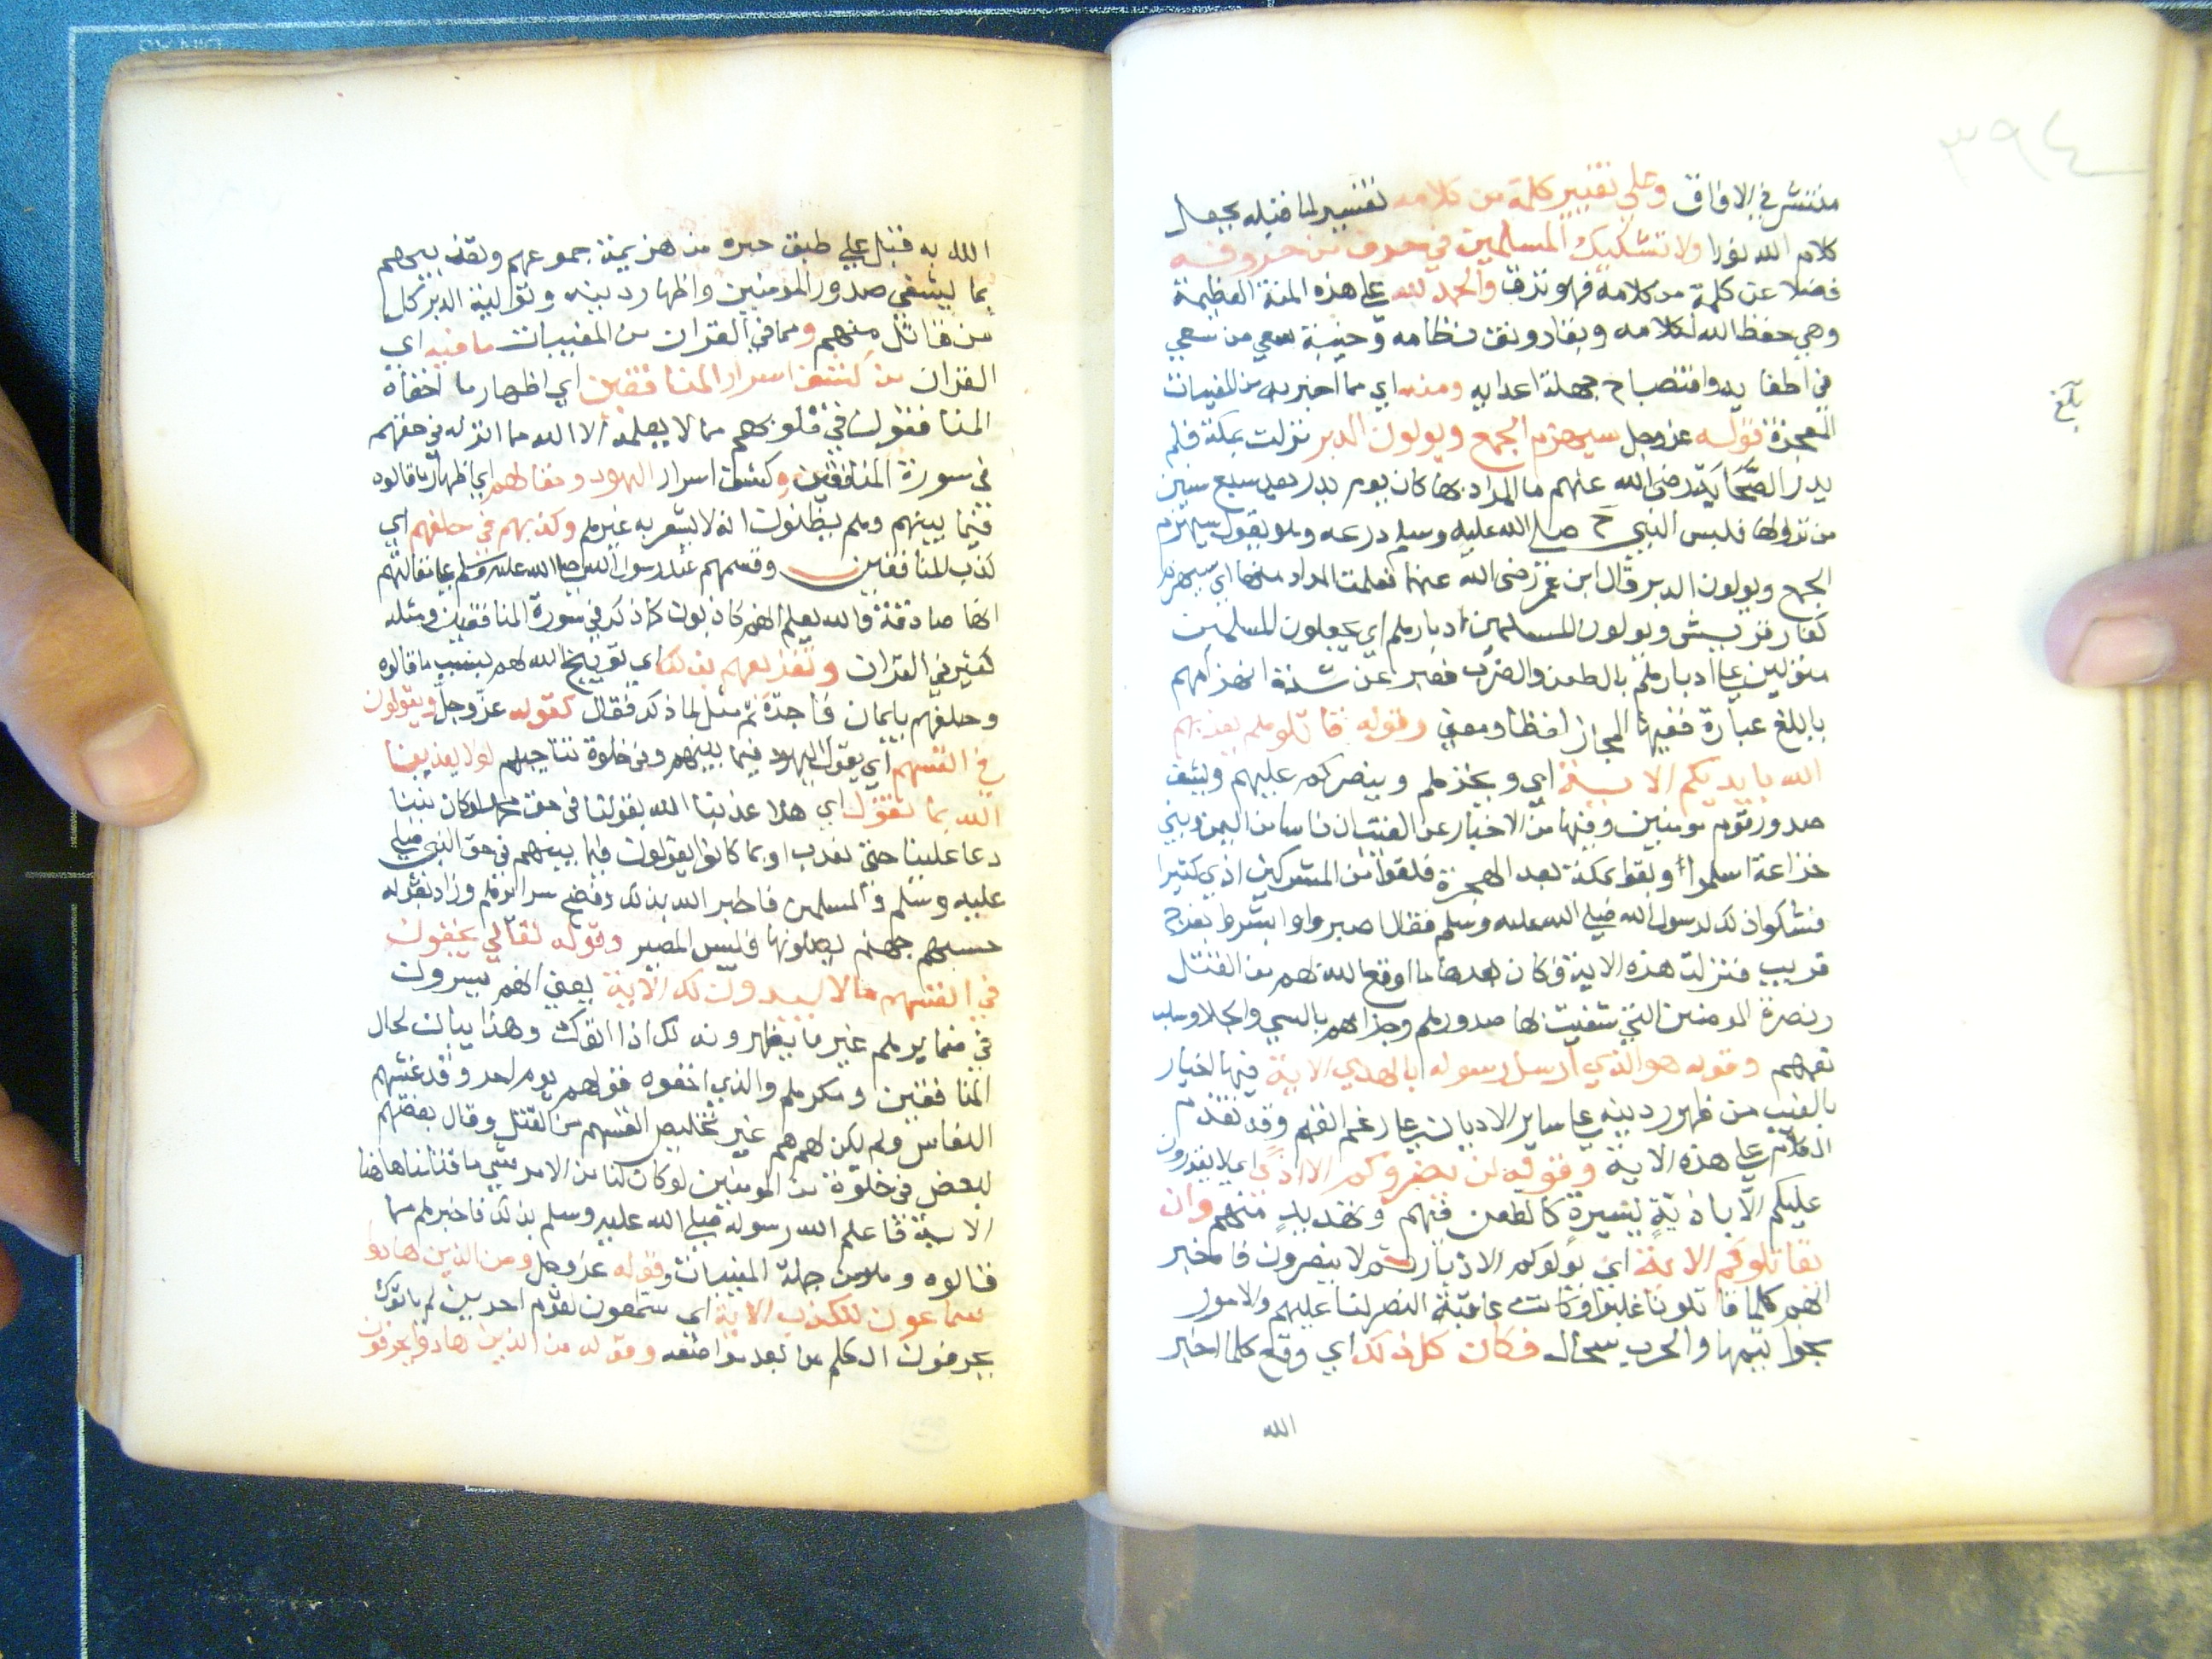 منتشر في الافاق وعلى تغيير كلمة من كلامه تفسير لما قبله بجعل
كلام الله نورا ولا تشكيك المسلمين في حرف من حروفه
فضلا عن كلمة من كلامه فهو ترق والحمد لله على هذه المنة العظيمة
وهي حفظ الله لكلامه وبقا رونق نظامه وخيبة سعي من سعي
في اطفايه وافتضاح جهلة اعدايه ومنه اي مما اخبر به من المغيبات
المعجزة قوله عز وجل سيهزم الجمع ويولون الدبر نزلت بمكة فلم
يدر الصحابة رضي الله عنهم ما المراد بها كان يوم بدر بعد سبع سنين
من نزولها فلبس النبي صلى الله عليه وسلم درعه وهو يقول سيهزم
الجمع ويولون الدبر قال ابن عمر رضي الله عنهما فعلمت المراد منها اي سيهزم
كفار قريش ويولون المسلمين ادبارهم اي يجعلون المسلمين
متولين على ادبارهم بالطعن والضرب فعبر عن شدة انهزامهم
بابلغ عبارة ففيها المجاز لفظا ومعني وقوله قاتلوهم يعذبهم
الله بايديكم الاية اي ويخزهم وينصركم عليهم ويشف
صدور قوم مومنين وفيها من الاخبار عن الغيب ان ناسا من اليمن وبني
خزاعة اسلموا وبقوا بمكة بعد الهجرة فلقوا من المشركين اذي كثيرا
فشكوا ذلك لرسول الله صلى الله عليه وسلم فقال اصبروا وابشروا بفرج
قريب فنزلت هذه الاية وكان بعدها ما اوقع الله بهم من القتل
ونصرة المومنين التي شفيت بها صدورهم وجزاهم بالسبي والجلا وسلب
نعمهم وقوله هو الذي ارسل رسوله بالهدي الاية فيها اخبار
بالغيب من ظهور دينه على ساير الاديان على رغم انفهم وقد تقدم
الكلام على هذه الاية وقوله لن يضروكم الا اذى اي لا يقدرون
عليكم الا باذية يسيرة كالطعن فيهم وتهديد منهم وان
يقاتلوكم الاية اي يولوكم الادبار ثم لا ينصرون فاخبر
انهم كلما قاتلونا غلبوا وكانت عاقبة النصر لنا عليهم والامور
بخواتيمها والحرب سجال فكان كل ذلك اي وقع كلما اخبر
الله
بلغ
الله به قبل على طبق خبره من هزيمة جموعهم وتعذيبهم
بما يشفي صدور المؤمنين واظهار دينه وتولية الدبر كل
من قاتل منهم ومما في القران من المغيبات ما فيه اي
القران من كشف اسرار المنافقين اي اظهار ما اخفاه
المنافقون في قلوبهم مما لا يعلمه الا الله مما انزله في حقهم
في سورة المنافقين وكشف اسرار اليهود ومقالهم اي اظهار ما قالوه
فيما بينهم وهم يظنون انه لا يشعر به غيرهم وكذبهم في حلفهم اي
كذب المنافقين وقسمهم عند رسول الله صلى الله عليه وسلم على مقالتهم
انها صادقة والله يعلم انهم كاذبون كما ذكر في سورة المنافقين ومثله
كثير في القران وتقريعهم بذلك اي توبيخ الله لهم بسبب ما قالوه
وحلفهم بايمان فاجرة ثم مثل لما ذكر فقال كقوله عز وجل ويقولون
في انفسهم اي يقول اليهود فيما بينهم وفي خلوة تناجيهم لولا يعذبنا
الله بما نقول اي هلا عذبنا الله بقولنا في حق محمد لو كان نبينا
دعا علينا حتى نعذب او بما كانوا يقولون فيما بينهم في حق النبي صلى
عليه وسلم والمسلمين فاخبر الله بذلك وفضح سرايرهم وزاد بقوله
حسبهم جهنم يصلونها فبيس المصير وقوله تعالى يخفون
في انفسهم ما لا يبدون لك الاية يعني انهم يسرون
في ضمايرهم غير ما يظهرونه لك اذا اتوك وهذا بيان لحال
المنافقين ومكرهم والذي اخفوه قولهم يوم احد وقد غشيهم
النعاس ولم يكن لهم هم غير تخليص انفسهم من القتل وقال بعضهم
لبعض في خلوة من المومنين لو كان لنا من الامر شي ما قتلنا هاهنا
الاية فاعلم الله رسوله صلى الله عليه وسلم بذلك فاخبرهم بما
قالوه وهو من جملة المغيبات وقوله عز وجل ومن الذين هادوا
سماعون للكذب الاية اي سماعون لقوم اخرين لم ياتوك
يحرفون الكلم من بعد مواضعه وقوله من الذين هادوا يحرفون